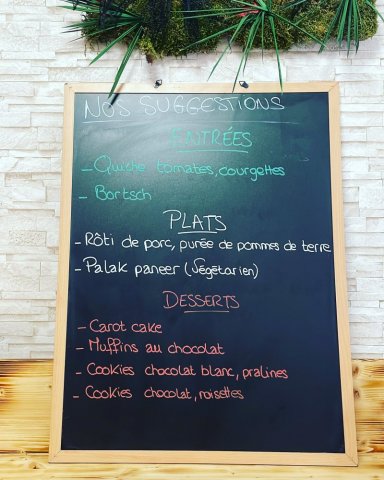 NOS SUGGESTIONS
ENTRÉES
- Quiche tomates, courgettes
- Bortsch
PLATS
- Rôti de porc, purée de pommes de terre
- Palak paneer (Végétarien)
DESSERTS
- Carot cake
- Muffins au chocolat
- Cookies chocolat blanc, pralines
- Cookies chocolat, noisettes